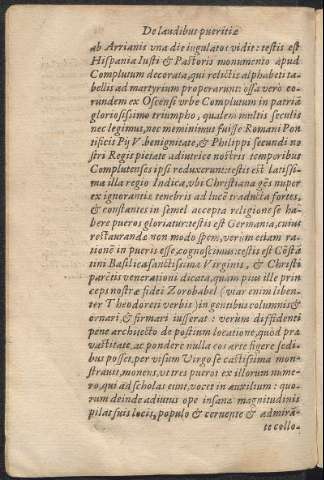 De laudibus pueritiæ
ab Arrianis vna die iugulatos vidit: testis est
Hispania Iusti & Pastoris monumento apud
Complutum decorata, qui relictis alphabeti ta-
bellis ad martyrium properarunt: ossa verò eo-
rundem ex Oscensi vrbe Complutum in patriã
gloriosissimo triumpho, qualem multis seculis
nec legimus, nec meminimus fuisse Romani Pon
tificis Pij V. benignitate, & Philippi secundi no
stri Regis pietate adiutrice nostris temporibus
Complutenses ipsi reduxerunt: testis est latissi-
ma illa regio Indica, vbi Christiana gẽs nuper
ex ignorantiæ tenebris ad lucẽ traducta fortes,
& constantes in semel accepta religione se ha-
bere pueros gloriatur: testis est Germania, cuius
restaurandæ non modo spem, verum etiam ra-
tionẽ in pueris esse, cognoscimus: testis est Cõstã
tini Basilica sanctissimæ Virginis, & Christi
parẽtis venerationi dicata, quam pius ille prin
ceps nostræ fidei Zorobabel (vtar enim liben-
ter Theodoreti verbis) ingentibus columnis &
ornari, & firmari iusserat: verùm diffidenti
pene architecto de postium locatione, quòd præ
vastitate, ac pondere nulla eos arte figere sedi-
bus posset, per visum Virgo se castissima mon-
strauit, monens, vt tres pueros ex illorum nume-
ro, qui ad scholas eunt, vocet in auxilium: quo-
rum deinde adiutus ope insanæ magnitudinis
pilas suis locis, populo & cernente & admirã-
te collo-